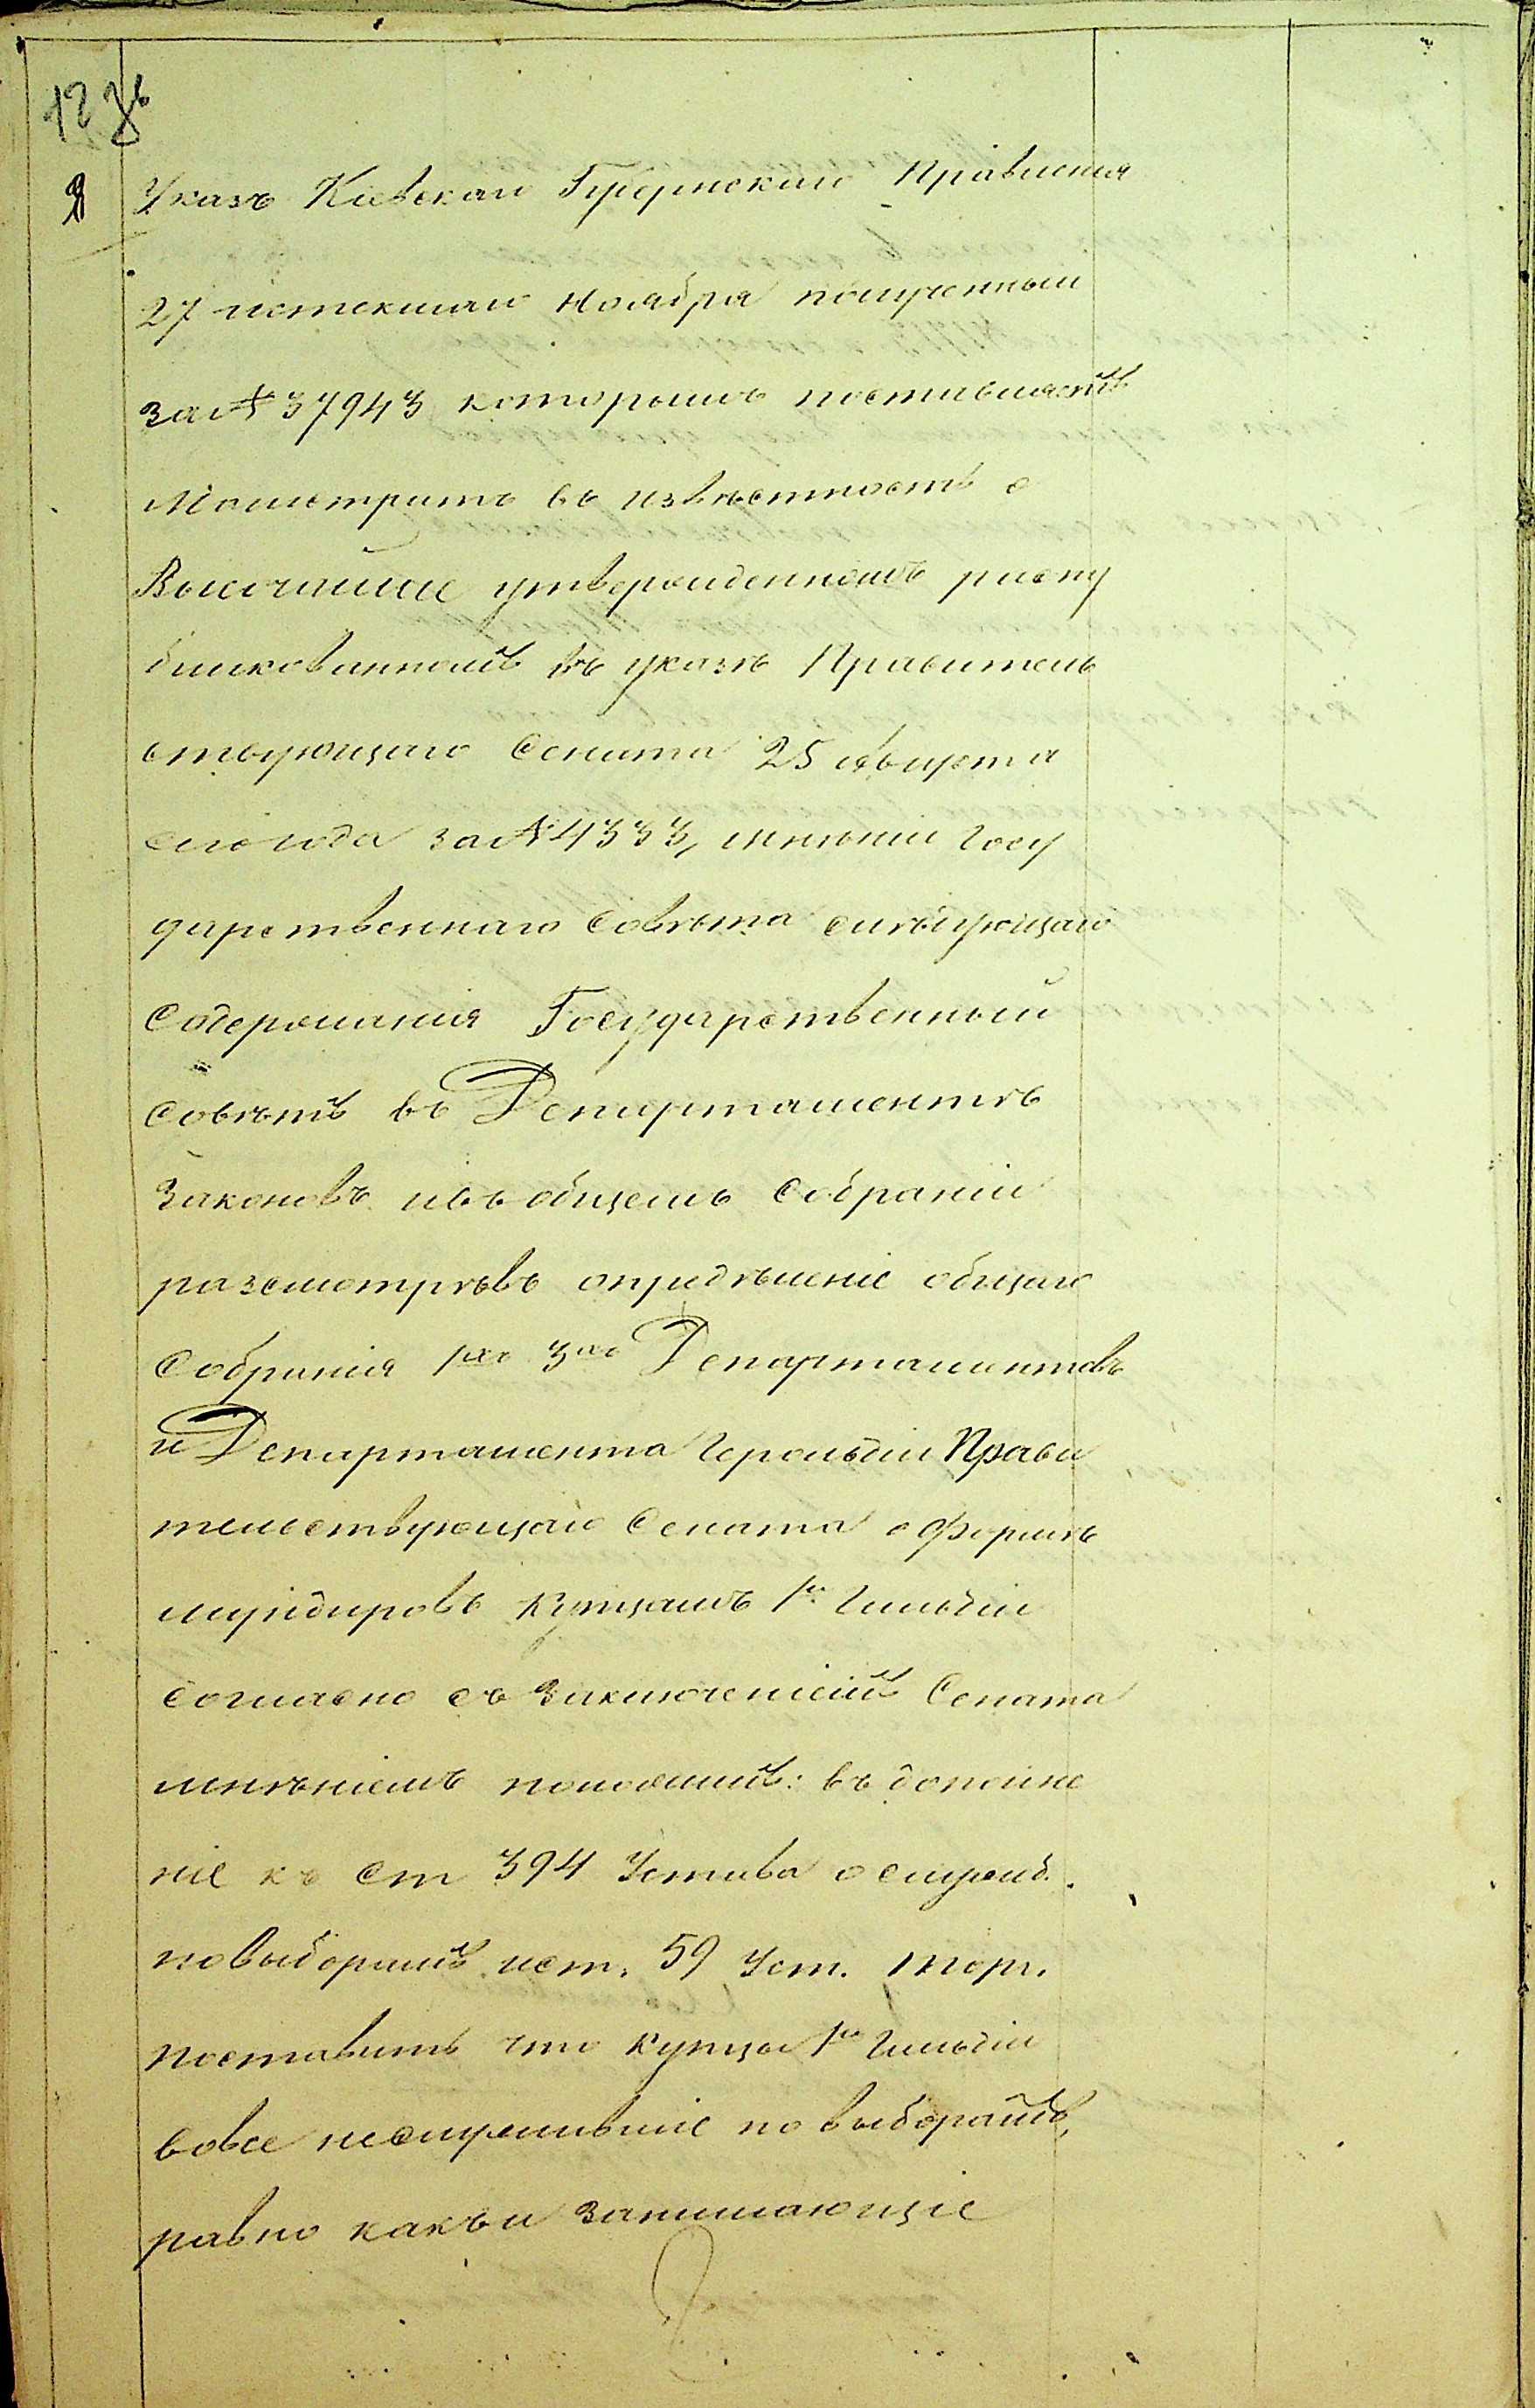 123
8 Указъ Кіевскаго Губернскаго Правленія
27 истекшаго Ноября полученный
за № 37943 которымъ поставляетъ
Магистратъ въ извѣстность о
Высочайше утвержденномъ распу
бликованномъ въ указѣ Правитель
ствующаго Сената 25 Августа
сего года за № 4333, мнѣніи Госу
дарственнаго Совѣта слѣдующаго
содержанія Государственный
Совѣтъ въ Департаментѣ
Законовъ и въ общемъ Собраніи
разсмотрѣвъ опредѣленіе общаго
Собранія 1хъ 3хъ Департаментовъ
и Департамента Герольдіи Прави
тельствующаго Сената о формѣ
мундировъ купцамъ 1й Гильдіи
согласно съ заключеніемъ Сената
мнѣніемъ положилъ: въ дополне
ніе къ ст 394 Устава о служб.
по выборамъ и ст. 59 Уст. торг.
поставить что купцы 1й Гильдіи
вовсе неслужившіе по выборамъ,
равно какъ и занимающіе